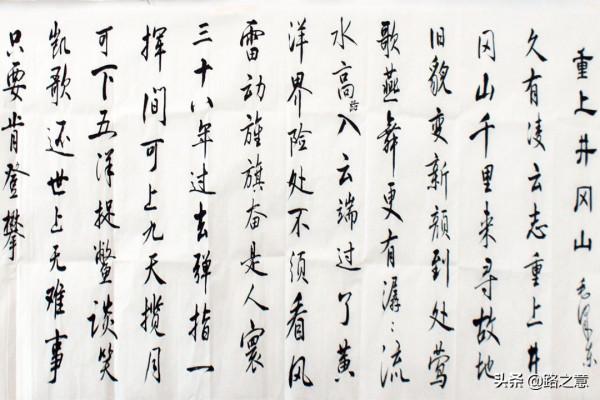 重上井冈山 毛泽东
久有凌云志重上井
冈山千里来寻故地
旧貌变新颜到处莺
歌燕舞更有潺〻流
水高路入云端过了黄
洋界险处不须看风
雷动旌旗奋是人寰
三十八年过去弹指一
挥间可上九天揽月
可下五洋捉鳖谈笑
凯歌还世上无难事
只要肯登攀
头条 @路之